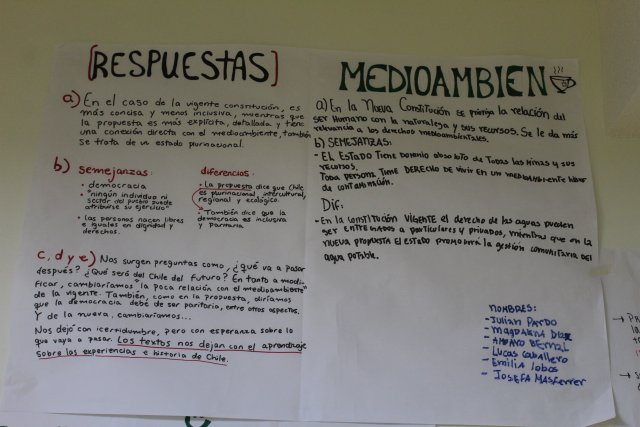 [RESPUESTAS]
a) En el caso de la vigente constitución, es
más concisa y menos inclusiva, mientras que
la propuesta es más explícita, detallada y tiene
una conexión directa con el medioambiente, también
se trata de un estado plurinacional.
b) semejanzas:
• democracia
• "ningún individuo ni
sector del pueblo puede
atribuirse su ejercicio"
• las personas nacen libres
e iguales en dignidad y
derechos.
diferencias:
• La propuesta dice que Chile
es plurinacional, intercultural,
regional y ecológico.
• También dice que la
democracia es inclusiva
y paritaria
c, d y e) Nos surgen preguntas como, ¿qué va a pasar
después? ¿Qué será del Chile del futuro? En tanto a modi-
ficar, cambiaríamos "la poca relación con el medioambiente"
de la vigente. También, como en la propuesta, diríamos
que la democracia debe de ser paritaria, entre otros aspectos.
Y de la nueva, cambiaríamos...
Nos dejó con icertidumbre, pero con esperanza sobre lo
que vaya a pasar. Los textos nos dejan con el aprendizaje
sobre las experiencias e historia de Chile.
MEDIOAMBIEN
a) En la Nueva Constitución se prioriza la relación del
ser Humano con la naturaleza y sus recursos. Se le da más
relevancia a los derechos medioambientales.
b) SEMEJANZAS:
- EL ESTADO Tiene Dominio absoluto de Todas las Minas y sus
recursos.
Toda persona Tiene DERECHO DE VIVIR EN UN MEDIOAMBIENTE libre
de contaminación.
Dif:
- En la constitución VIGENTE el derecho de las aguas pueden
ser entregados a particulares y privados, mientras que en la
nueva propuesta el estado promoverá la gestión comunitaria del
agua potable.
NOMBRES:
- Julián Pardo
- Magdalena Díaz
- Amparo Bernal
- Lucas Caballero
- Emilia Lobos
- Josefa Masferrer